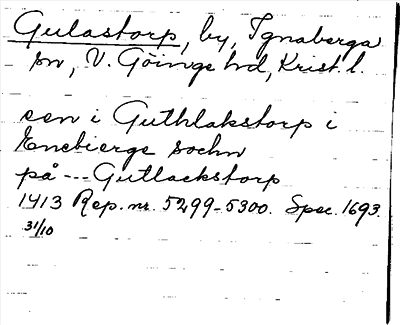 Gulastorp, by, Ignaberga
sn, V. Göinge hd, Krist. l.
een i Guthlakstorp i
Enebierge sochn
på --- Gutlackstorp
1413 Rep. nr. 5299-5300. Spec. 1693.
31/10